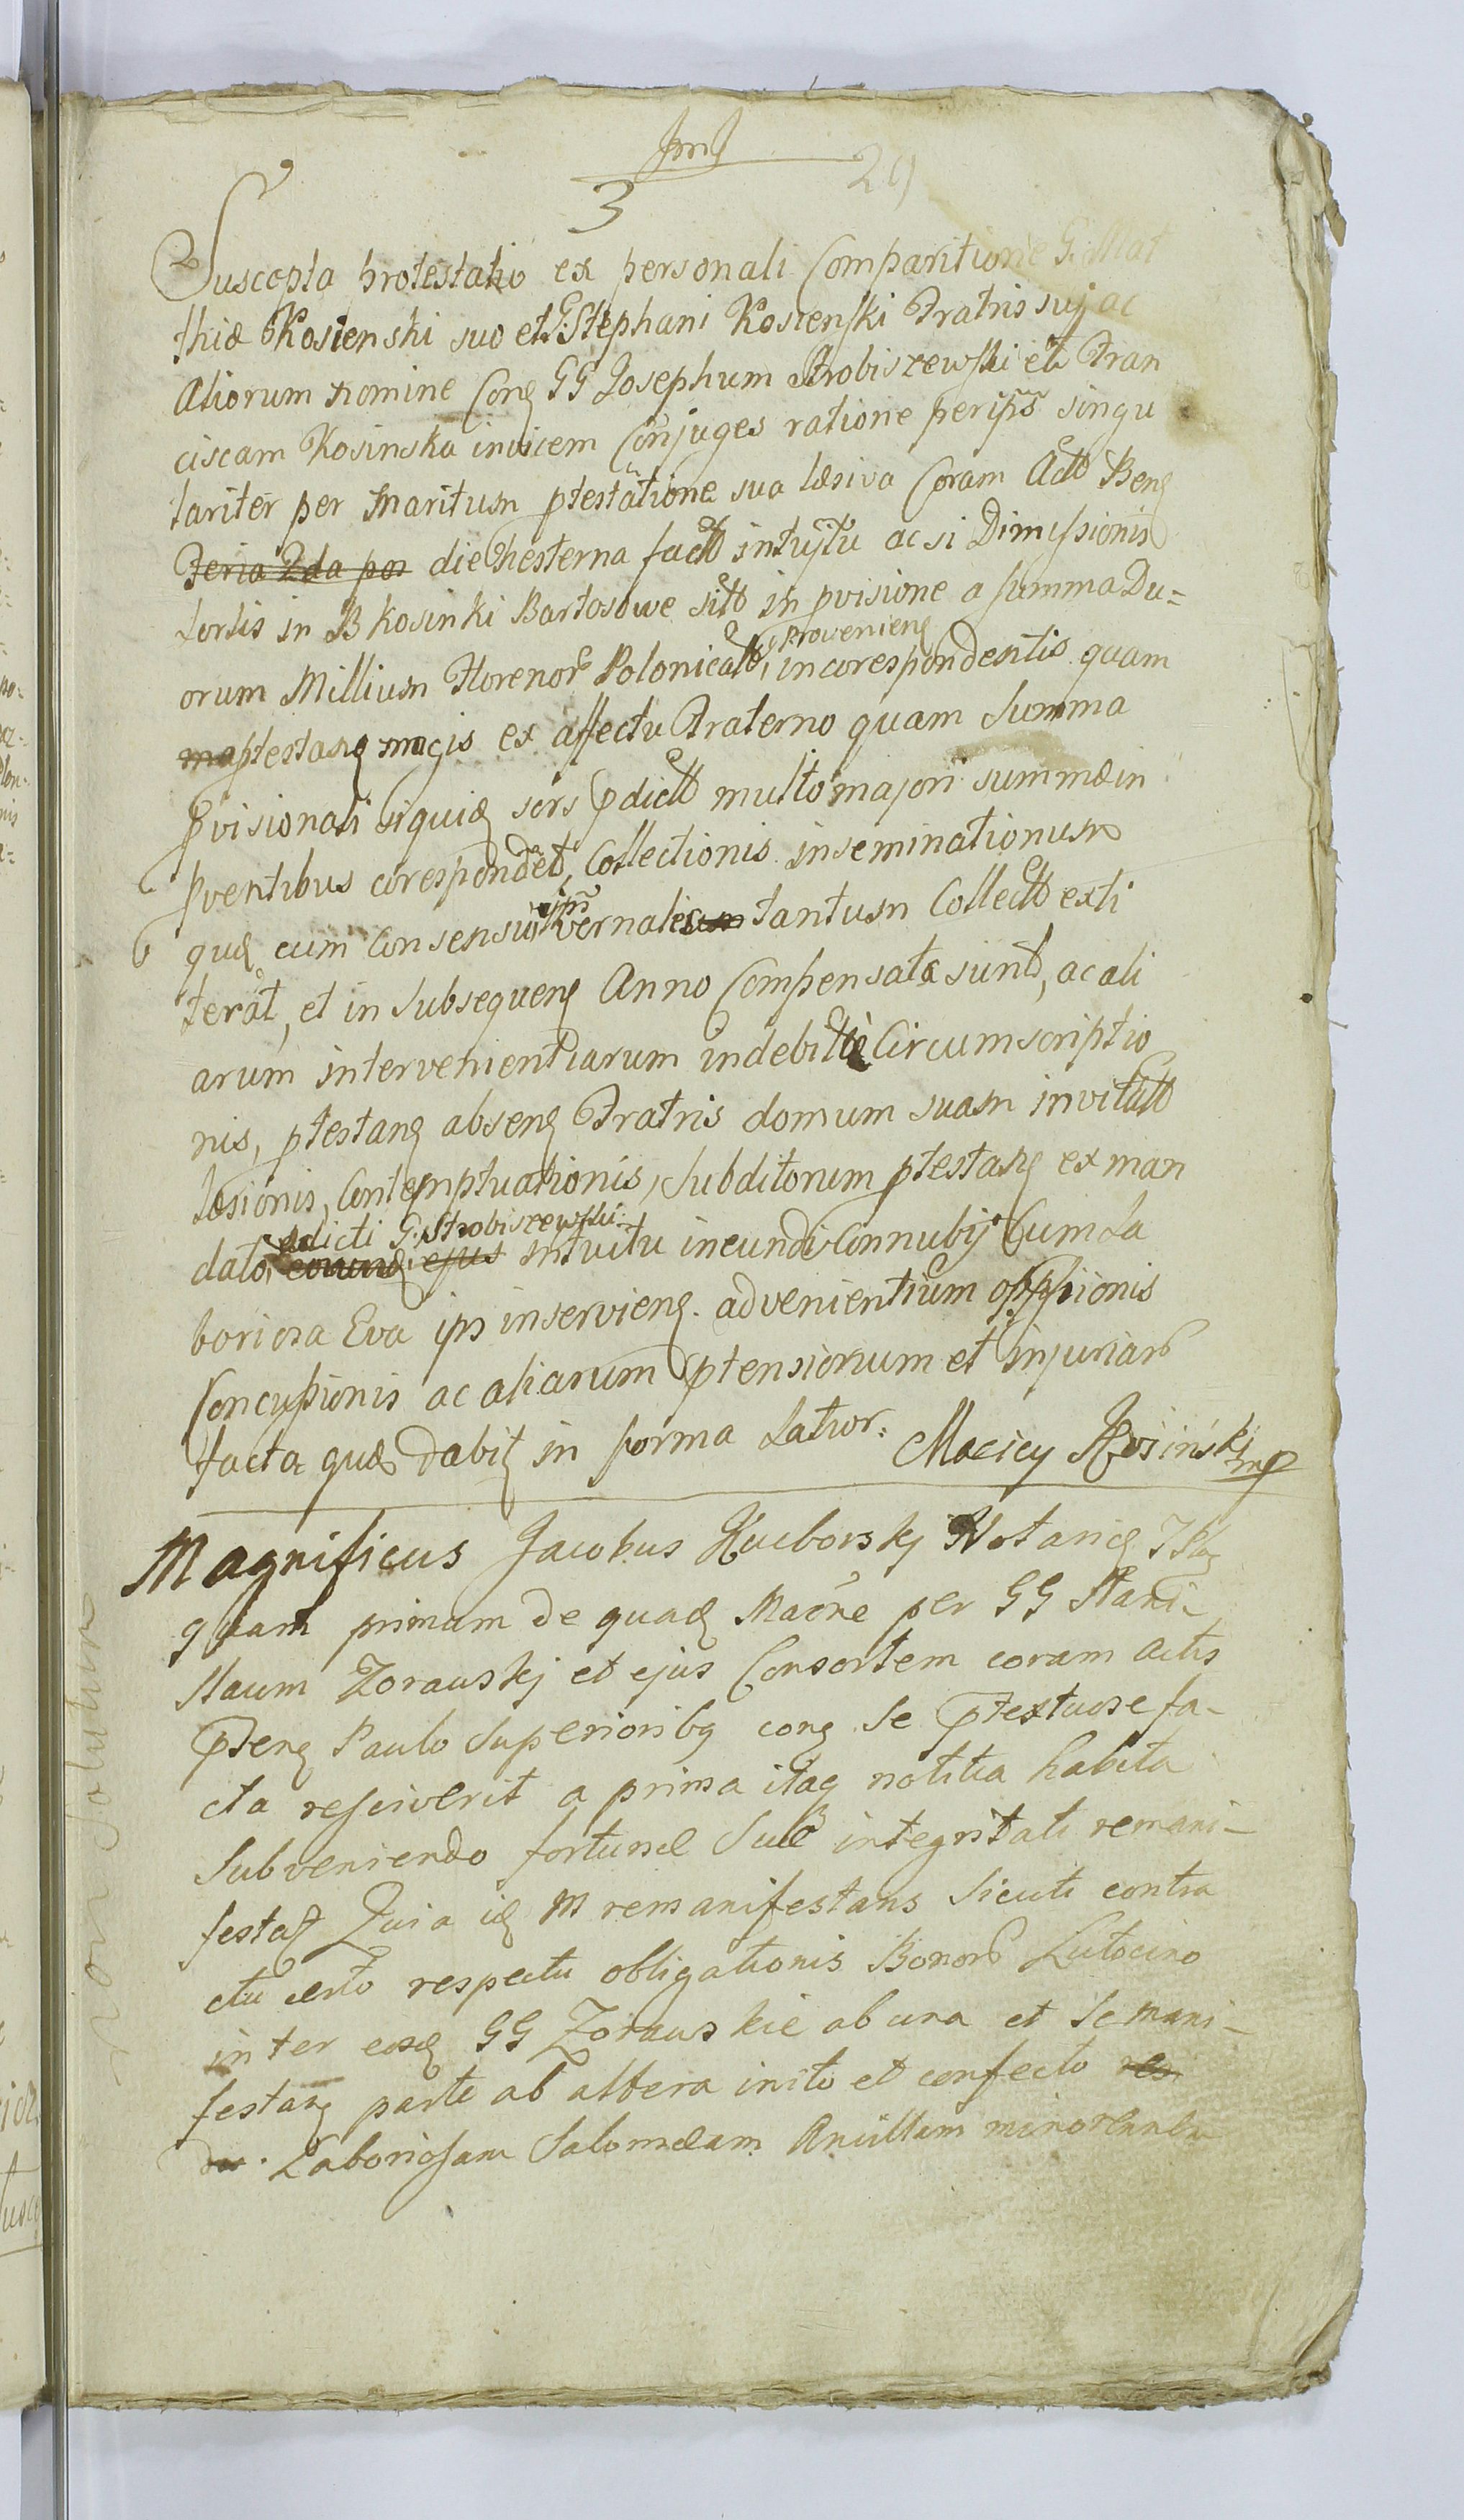 3
29
Suscepta protestatio ex personali Comparitione G. Mat
thiæ Kosienski suo et G: Stephani Kosienski Fratris suj ac
Aliorum nomine Cong GG Josephum Strobiszewski et Fran
ciscam Kosinska invicem Conjuges ratione per ips singu
lariter per Maritum ptestatione sua læsiva Coram Act Beng
Feria 2da pos die hesterna fact intujtu ac si Dimissionis
sortis in B Kosinki Bartosowe sit in pvisione a summa Du=
provenieng
orum Millium Florenor Polonical, incorespondentis quam
ma ptestang magis ex affectu Fraterno quam Summa
Pvisionali siquid sors pdict multo majori summæ in
pventibus corespondet, Collectionis inseminationum
ips
quæ cum Consensu vernales tantum Collect exti
terat, et in subsequeng Anno Compensatæ sunt, ac ali
arum intervenientiarum indebite Circumscriptio
nis, ptestang abseng Fratris domum suam invitat
læsionis, Contemptuationis, Subditorum ptestang ex man
pdicti G. Strobiszewski
dato ejus intuitu ineundi Connubij Cum La
boriosa Eva ips inservieng. advenientium oppssionis
Concussionis ac aliarum ptensionum et injuriar
facta quæ dabit in forma Latior.
Maciey Kosinski mp
Magnificus Jacobus Kuczborskj Notarig
quam primam de quad Maõne per GG Stani-
slaum Zorauskj et ejus Consortem coram actis
Pteng Paulo Superioribg cong Se Ptextuose fa-
cta resciverit a prima itaq notitia habita
Subveniendo fortunæ Suæ integritati remani-
festat Quia id M remanifestans Sicuti contra
ctu certo respectu obligationis Bonor Lutocino
inter eosd GG Zorauskie ab una et Se mani-
festang parte ab altera inito et confecto
Laboriosam Salomeam Ancillam
non Solutum